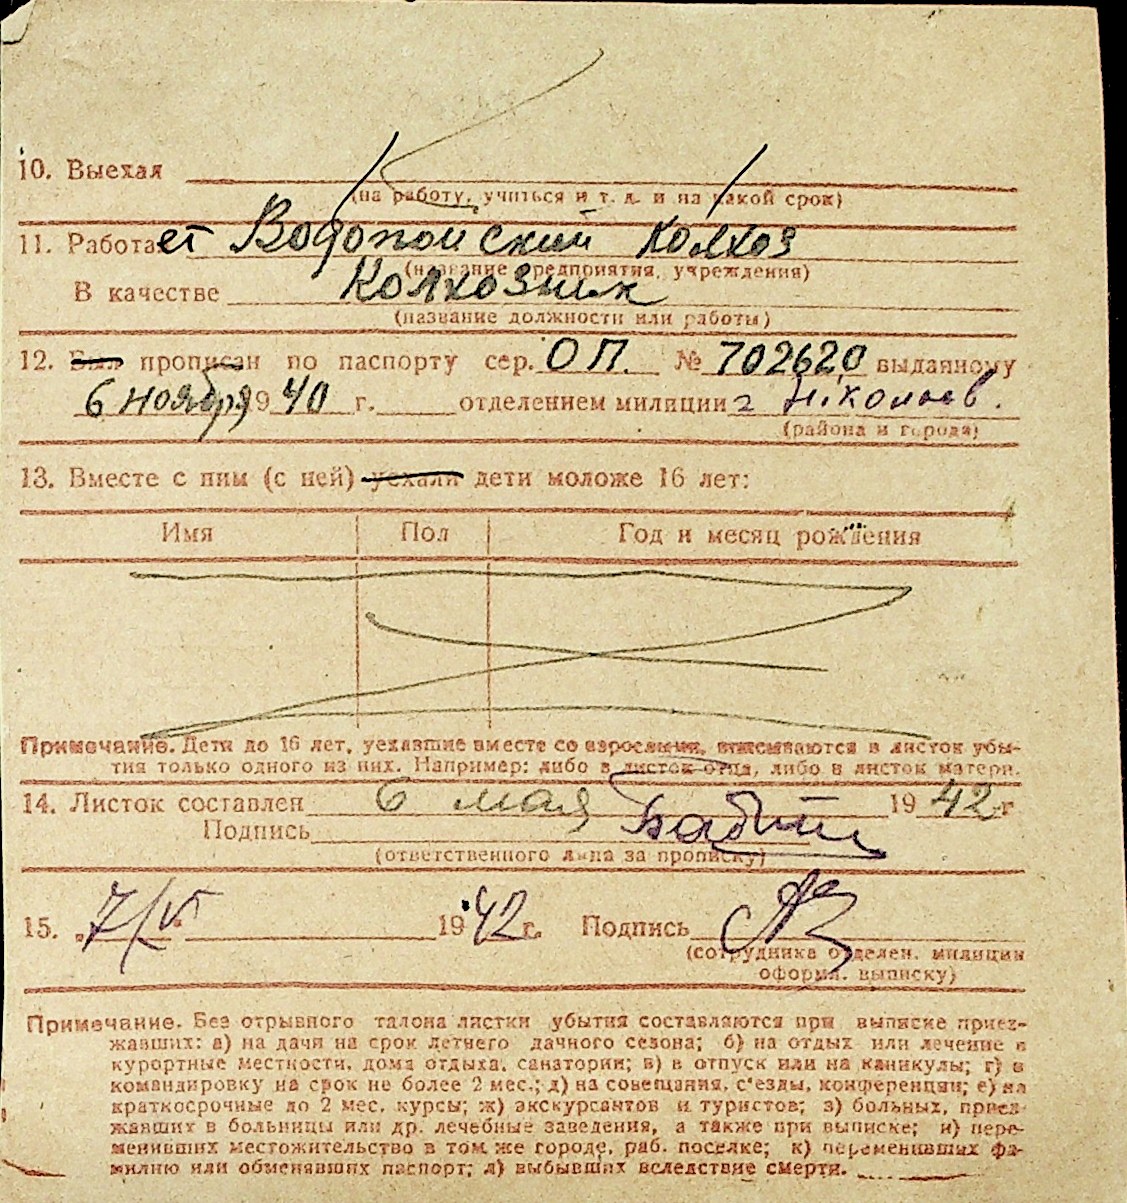 10. Выехал
(на работу, учиться и т. д. и на какой срок)
11. Работает Водопойский Колхоз
(название предприятия, учреждения)
В качестве Колхозник
(название должности или работы)
12. Был прописан по паспорту сер. ОП. № 702620 выданному
6 ноября 1940 г. отделением милиции г Николаев.
(района и города)
13. Вместе с ним (с ней) уехали дети моложе 16 лет:
Имя Пол Год и месяц рождения
Примечание. Дети до 16 лет, уехавшие вместе со взрослыми, вписываются в листок убы-
тия только одного из них. Например: либо в листок отца, либо в листок матери.
14. Листок составлен 6 мая 1942 г
Подпись
(ответственного лица за прописку)
15. 7/VI 1942 г. Подпись
(сотрудника отделен. милиции
оформ. выписку)
Примечание. Без отрывного талона листки убытия составляются при выписке приез-
жавших: а) на дачи на срок летнего дачного сезона; б) на отдых или лечение в
курортные местности, дома отдыха, санатории; в) в отпуск или на каникулы; г) в
командировку на срок не более 2 мес.; д) на совещания, с'езды, конференции; е) на
краткосрочные до 2 мес. курсы; ж) экскурсантов и туристов; з) больных, приез-
жавших в больницы или др. лечебные заведения, а также при выписке; и) пере-
менивших местожительство в том же городе, раб. поселке; к) переменивших фа-
милию или обменявших паспорт; л) выбывших вследствие смерти.